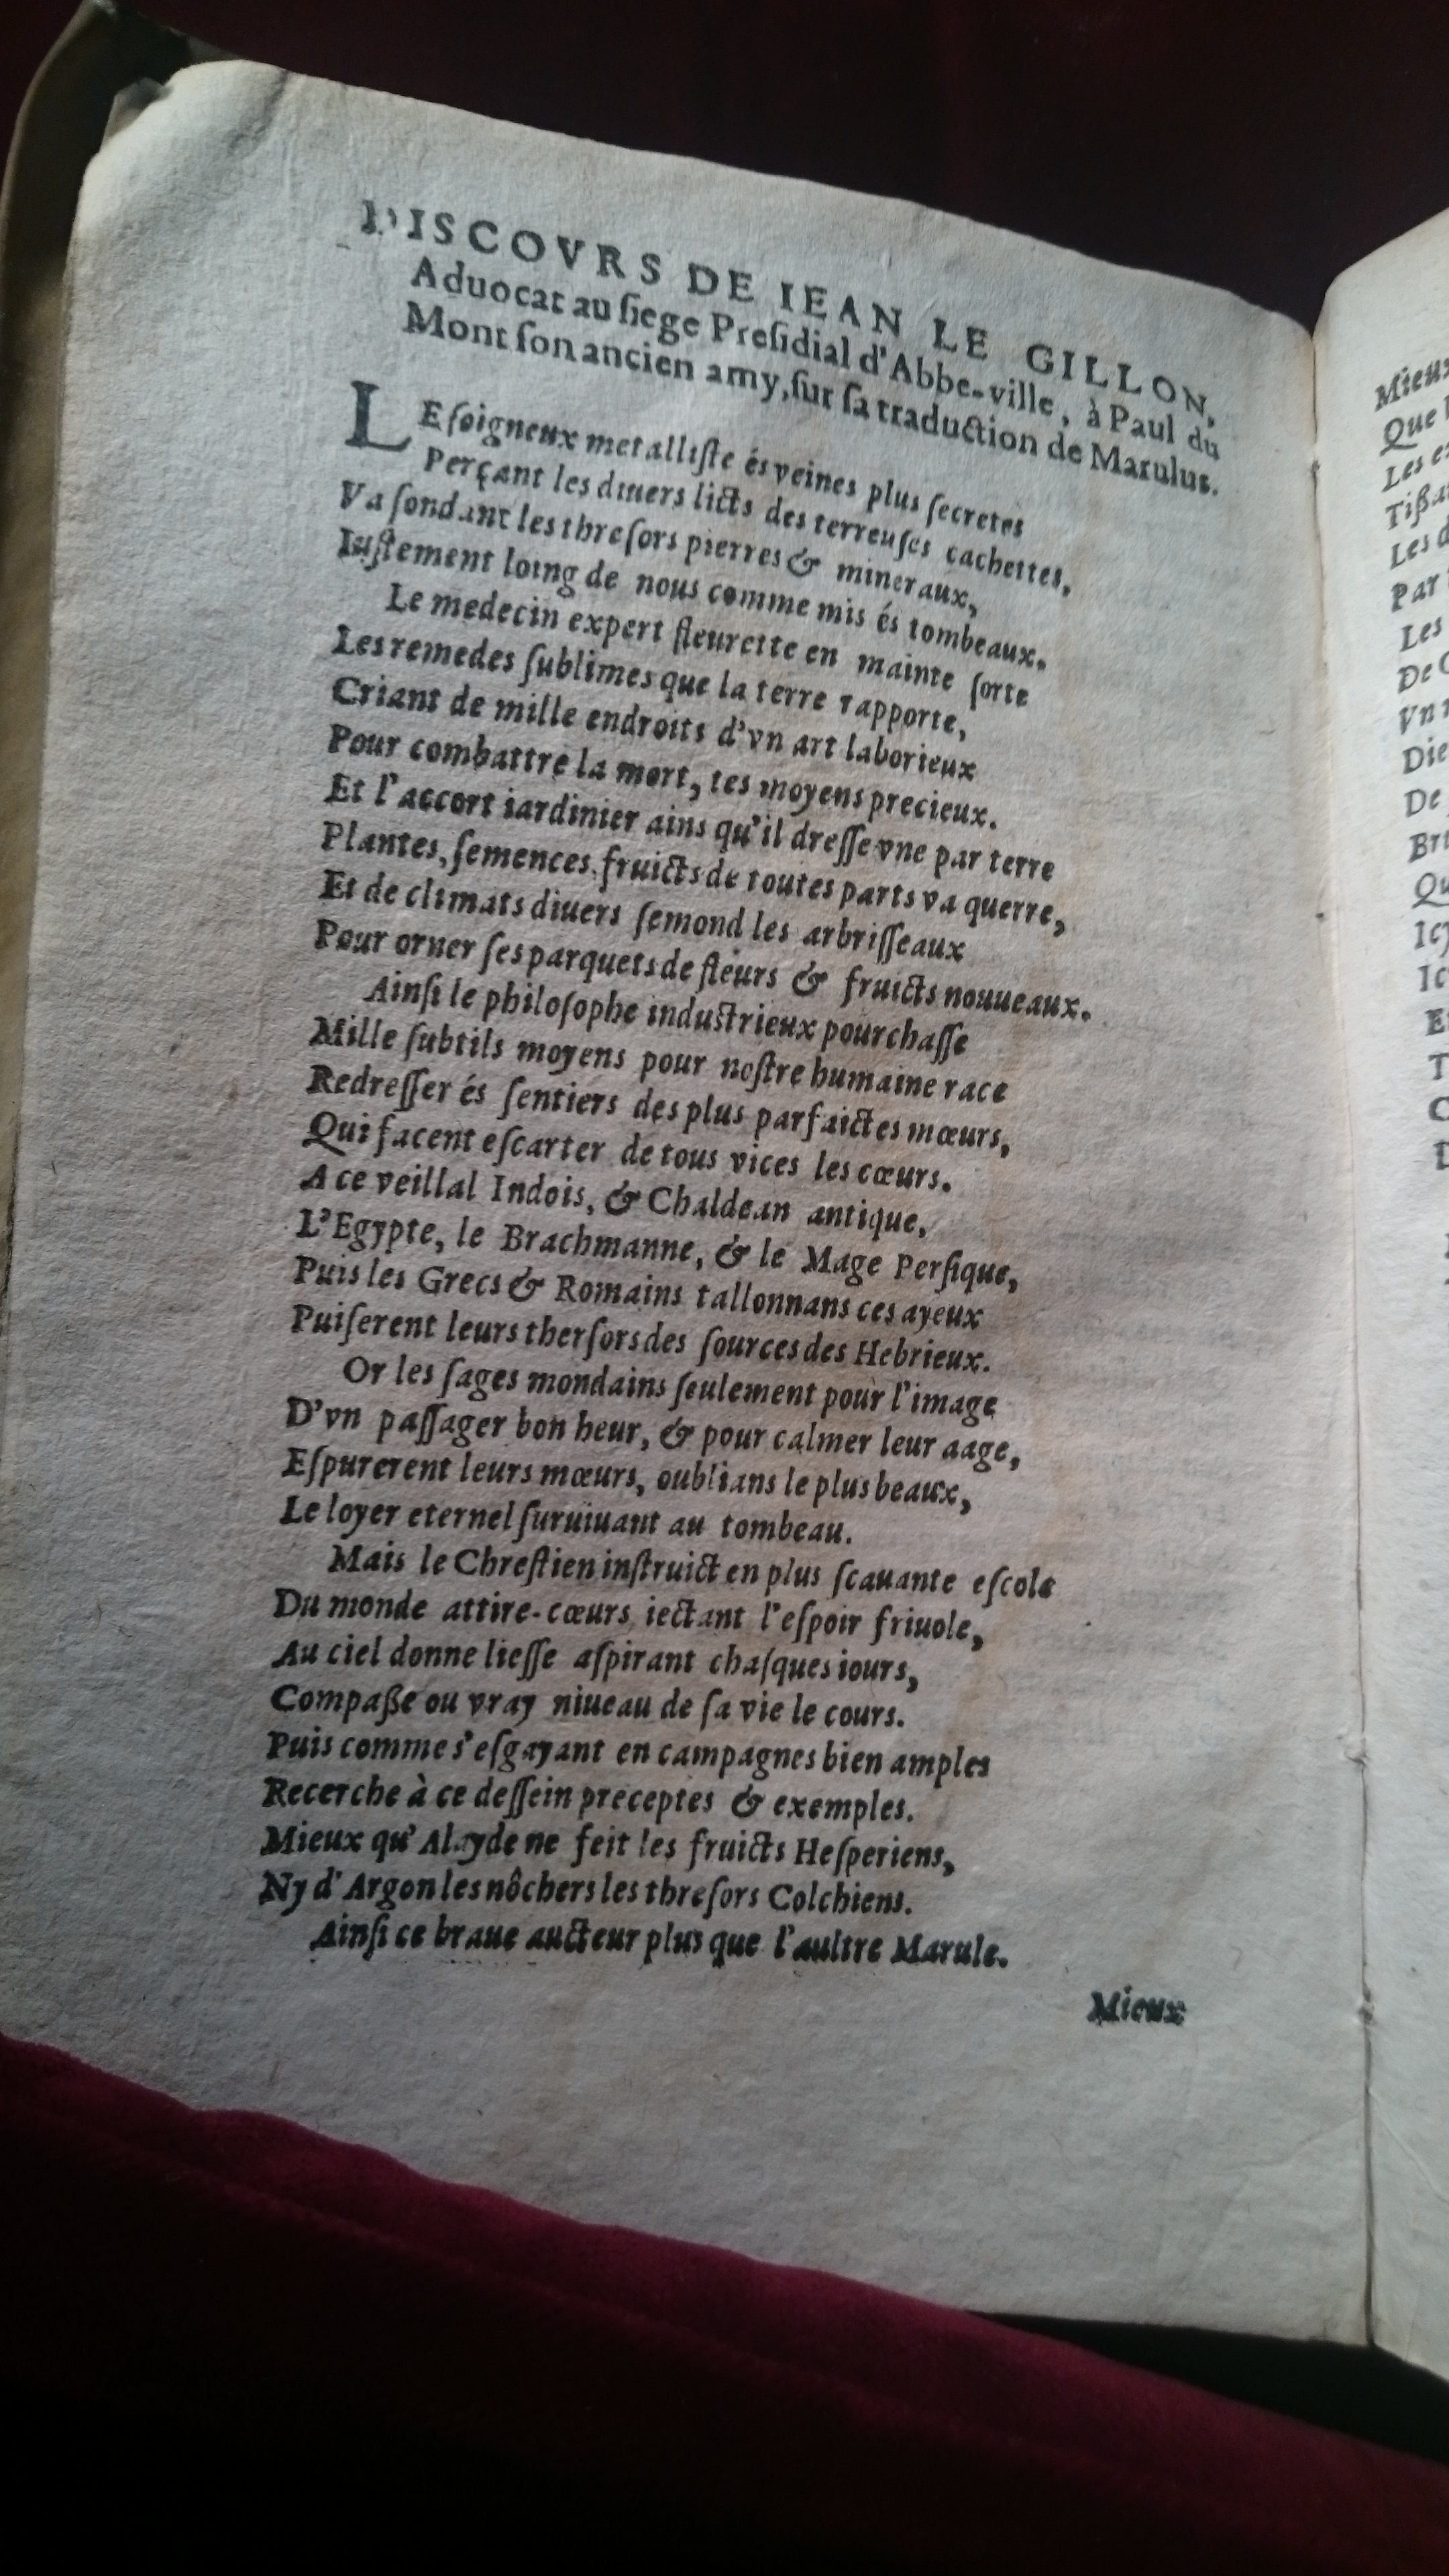 DISCOVRS DE IEAN LE GILLON,
Aduocat au ſiege Preſidial d'Abbe-ville, à Paul du
Mont ſon ancien amy, ſur ſa traduction de Marulus.
LE ſoigneux metalliſte és veines plus ſecretes
Perçant les diuers licts des terreuſes cachettes,
Va ſondant les threſors pierres & mineraux,
Iuſtement loing de nous comme mis és tombeaux.
Le medecin expert fleurette en mainte ſorte
Les remedes ſublimes que la terre rapporte,
Criant de mille endroits d'vn art laborieux
Pour combattre la mort, tes moyens precieux.
Et l'accort iardinier ains qu'il dreſſe vne par terre
Plantes, ſemences, fruicts de toutes parts va querre,
Et de climats diuers ſemond les arbriſſeaux
Pour orner ſes parquets de fleurs & fruicts nouueaux.
Ainſi le philoſophe induſtrieux pourchaſſe
Mille ſubtils moyens pour noſtre humaine race
Redreſſer és ſentiers des plus parfaictes mœurs,
Qui facent eſcarter de tous vices les cœurs.
A ce veillal Indois, & Chaldean antique,
L'Egypte, le Brachmanne, & le Mage Perſique,
Puis les Grecs & Romains tallonnans ces ayeux
Puiſerent leurs therſors des ſources des Hebrieux.
Or les ſages mondains ſeulement pour l'image
D'vn paſſager bon heur, & pour calmer leur aage,
Eſpurerent leurs mœurs, oublians le plus beaux,
Le loyer eternel ſuruiuant au tombeau.
Mais le Chreſtien inſtruict en plus ſcauante eſcole
Du monde attire-cœurs iectant l'eſpoir friuole,
Au ciel donne lieſſe aſpirant chaſques iours,
Compaße ou vray niueau de ſa vie le cours.
Puis comme s'eſgayant en campagnes bien amples
Recerche à ce deſſein preceptes & exemples.
Mieux qu'Alayde ne feit les fruicts Heſperiens,
Ny d'Argon les nôchers les threſors Colchiens.
Ainſi ce braue aucteur plus que l'aultre Marule.
Mieux
Mieux
Que
Les
Tißa
Les
Par
Les
De
Vn
Die
De
Bri
Qu
Icy